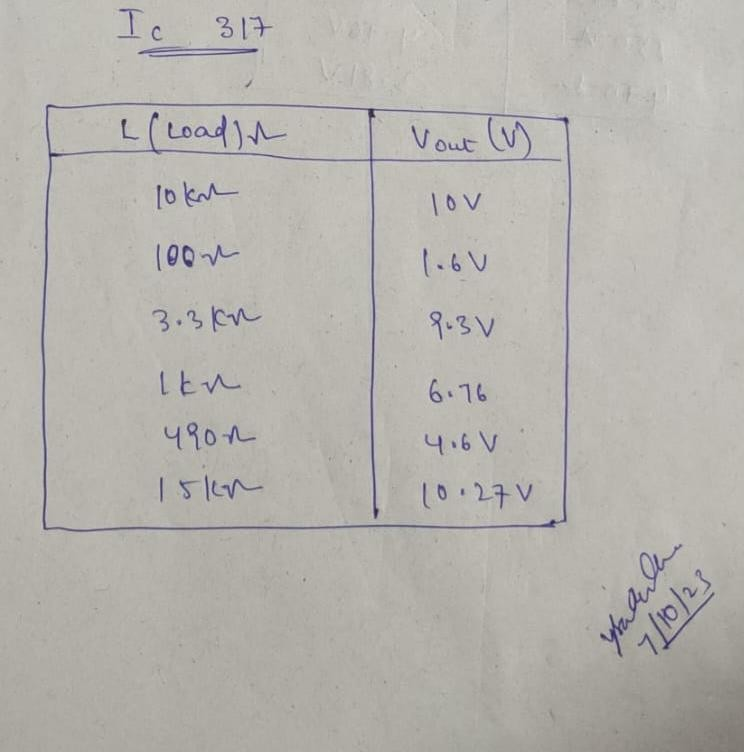 Ic 317
L (Load) Ω Vout (V)
10kΩ 10V
100Ω 1.6V
3.3kΩ 9.3V
1kΩ 6.76
490Ω 4.6V
15kΩ 10.27V
7/10/23